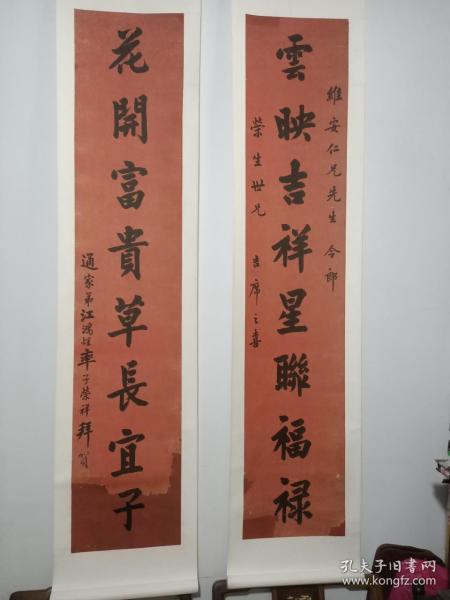 維安仁兄先生 令郎
雲映吉祥星聯福禄
榮生世兄 吉席之喜
花開富貴草長宜子
通家弟江鴻 率子榮祥拜賀
孔夫子旧书网
www.kongfz.com